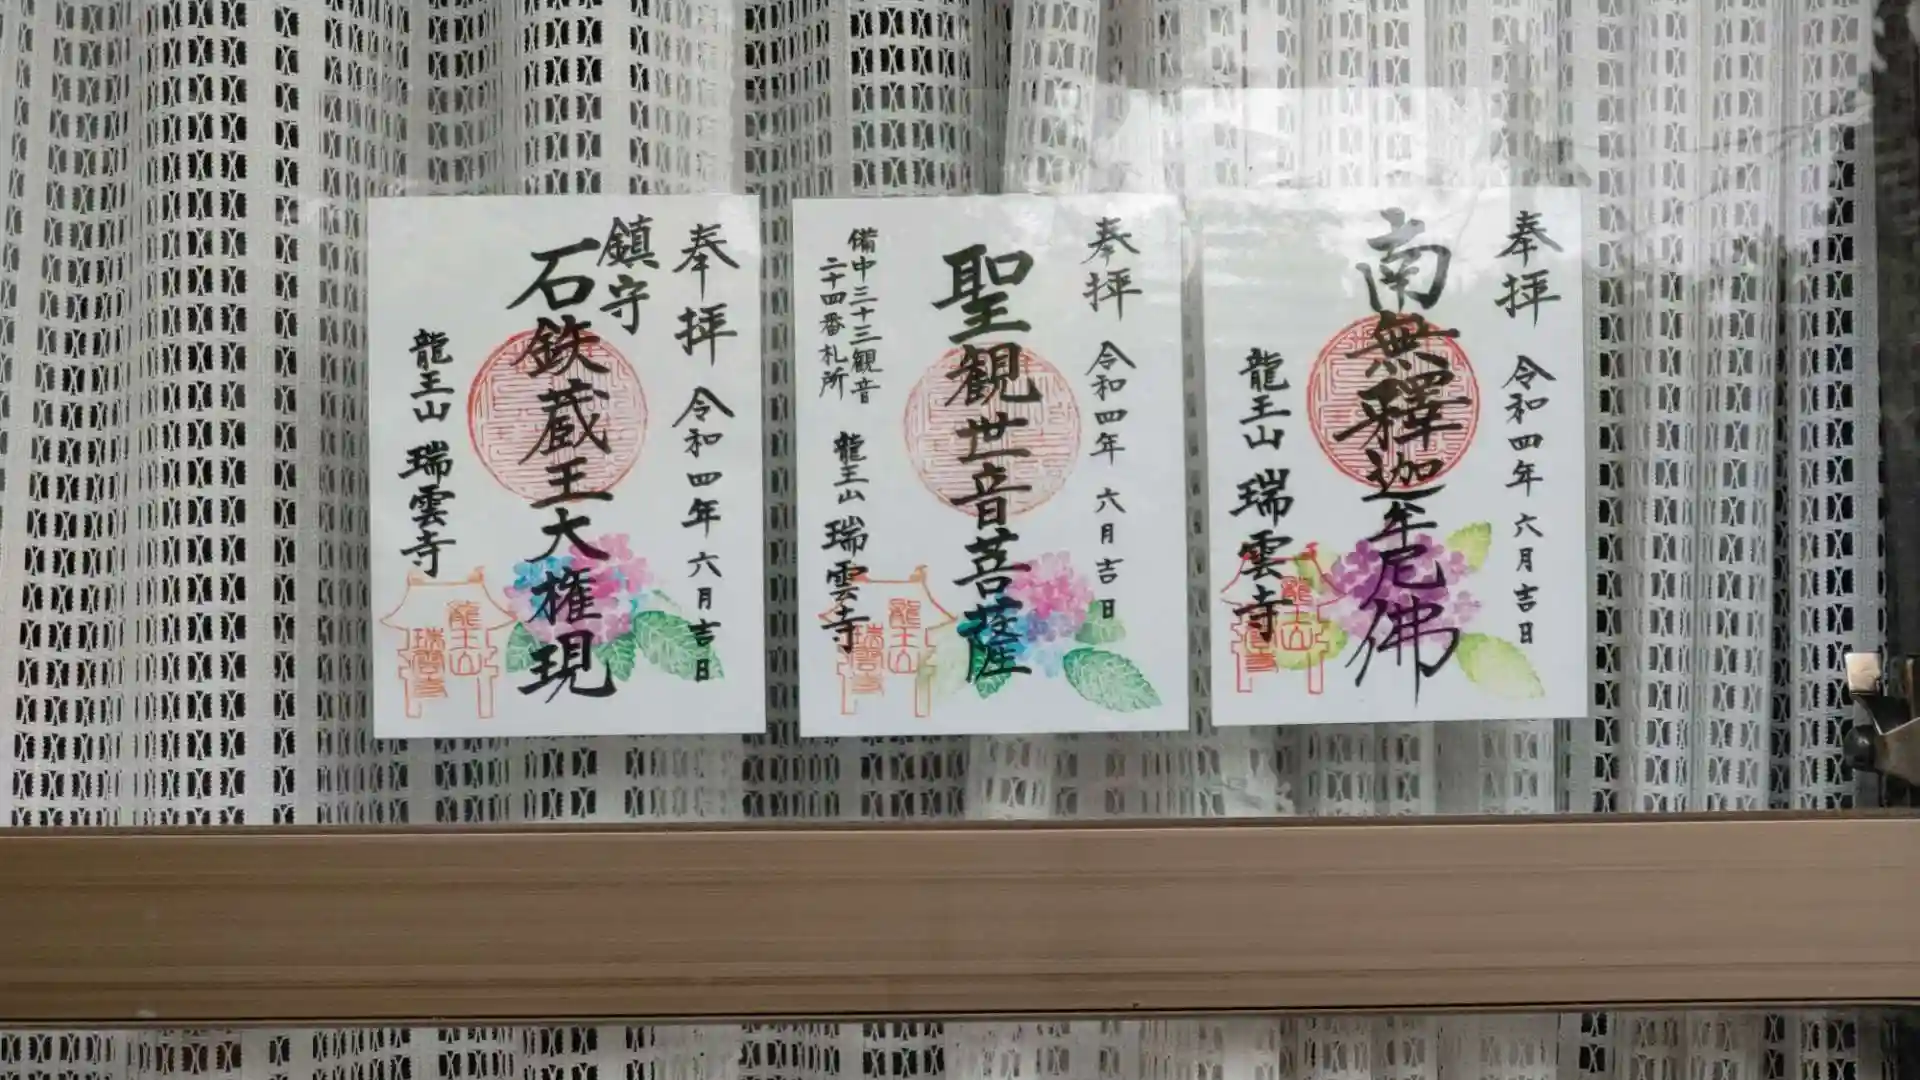 奉拝 令和四年 六月吉日
南無釋迦牟尼佛
龍王山 瑞雲寺
龍王山
奉拝 令和四年 六月吉日
聖観世音菩薩
備中三十三観音
二十四番札所
龍王山 瑞雲寺
龍王山
瑞雲寺
奉拝 令和四年 六月吉日
鎮守
石鉄蔵王大権現
龍王山 瑞雲寺
龍王山
瑞雲寺